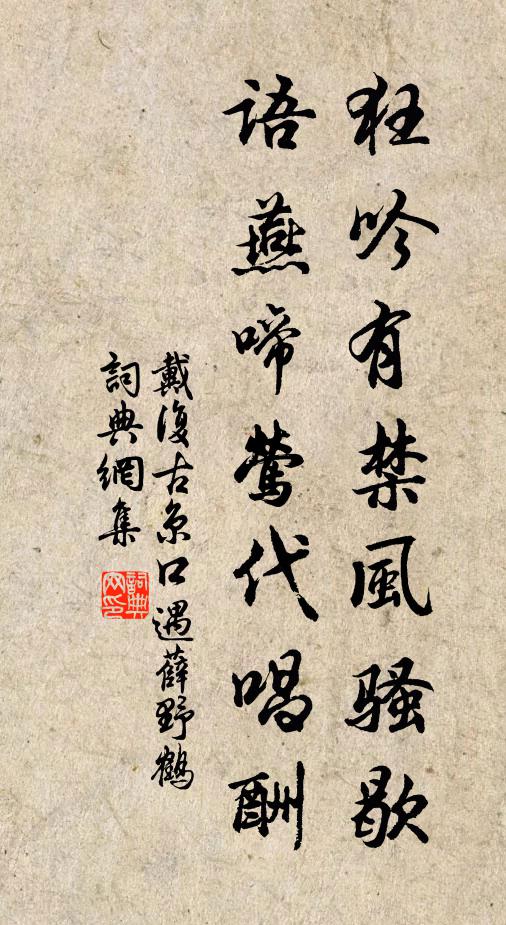 狂吟有禁風騷歇
語燕啼鶯代唱酬
戴復古京口遇薛野鶴
詞典網集
詞典
网印